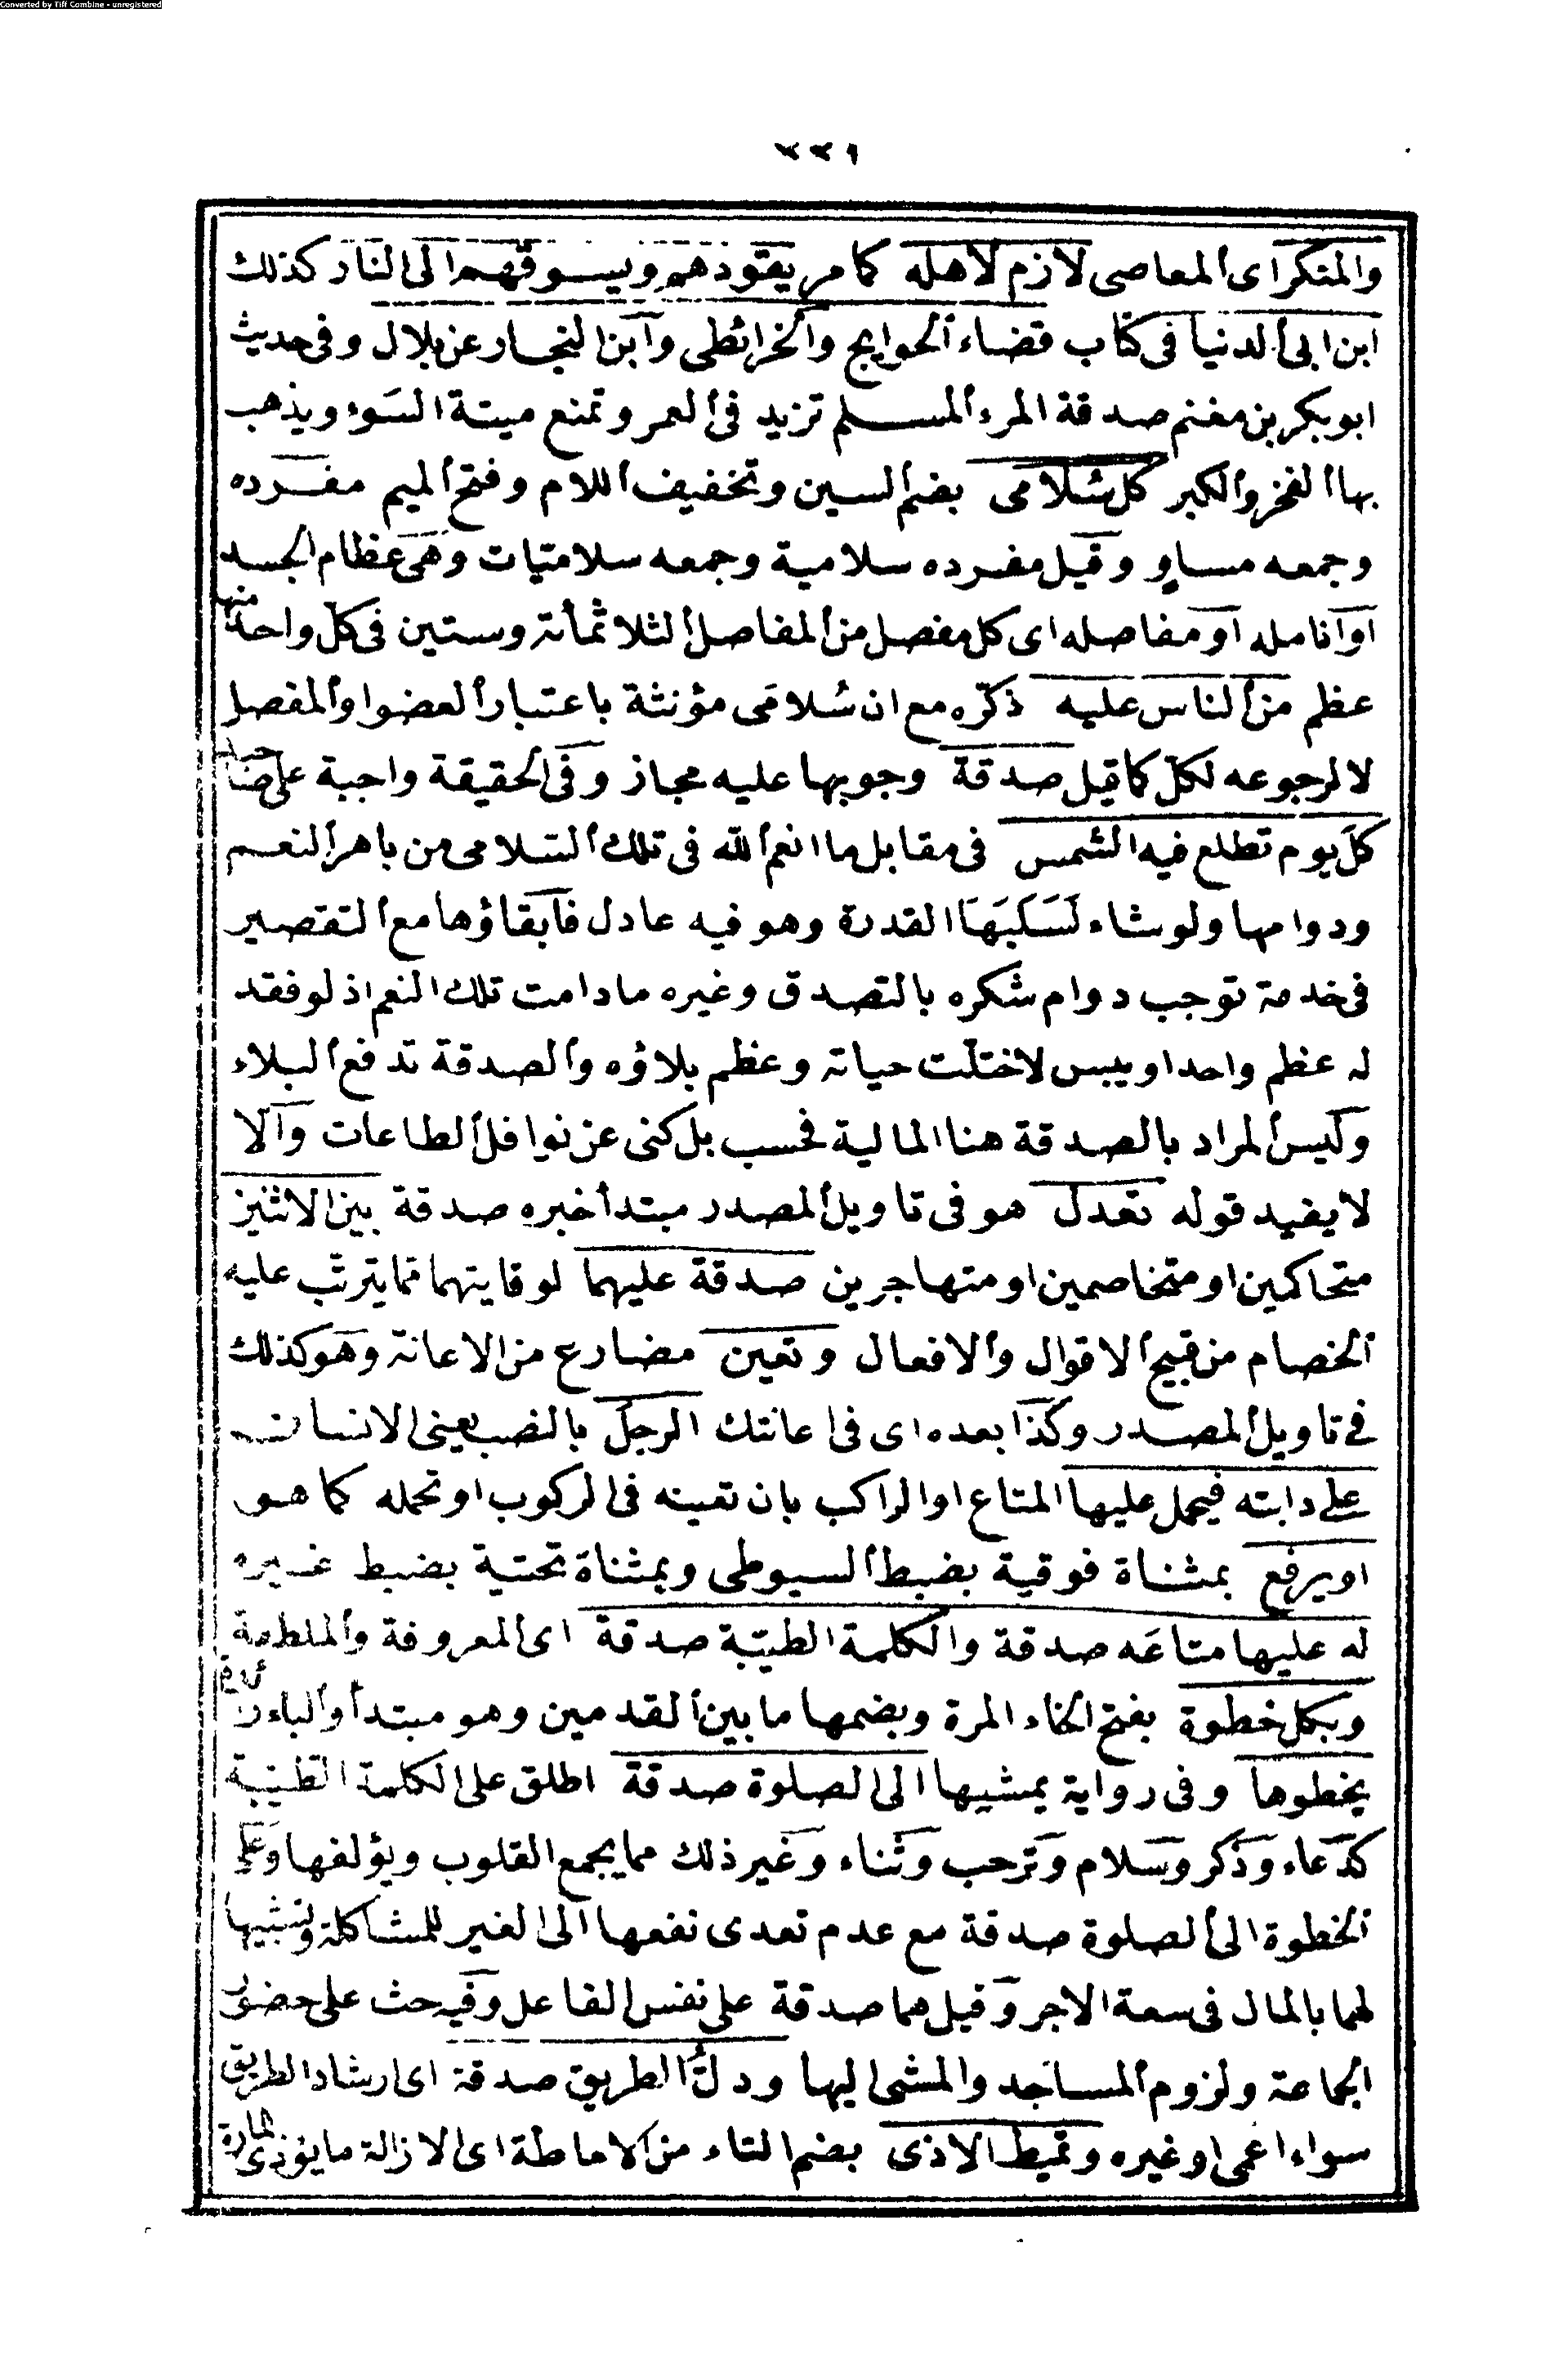 Converted by Tiff Combine - unregistered
٢٢٩
والمنكر اى المعاصى لازم لاهله كما مر يقودهم ويسوقهم الى النار كذلك
ابن ابى الدنيا فى كتاب قضاء الحوايج والخرائطى وابن النجار عن بلال وفى حديث
ابو بكر بن مغنم صدقة المرء المسلم تزيد فى العمر وتمنع ميتة السوء ويذهب
بها الفخر والكبر كل سُلامى بضم السين وتخفيف اللام وفتح الميم مفرده
وجمعه مساوٍ وقيل مفرده سلامية وجمعه سلاميات وهى عظام الجسد
او انامله او مفاصله اى كل مفصل من المفاصل الثلاثمأة وستين فى كل واحد منها
عظم من الناس عليه ذكّره مع ان سُلامَى مؤنثة باعتبار العضو او المفصل
لا لرجوعه لكلّ كما قيل صدقة وجوبها عليه مجاز وفى الحقيقة واجبة على صاحبها
كلَ يوم تطلع فيه الشمس فى مقابل ما انعم الله فى تلك السلامى من باهر النعم
ودوامها ولو شاء لَسَلَبَهَا القدرة وهو فيه عادل فابقاؤها مع التقصير
فى خدمة توجب دوام شكره بالتصدق وغيره ما دامت تلك النعم اذ لو فقد
له عظم واحد او يبس لاختلّت حياته وعظم بلاؤه والصدقة تدفع البلاء
وليس المراد بالصدقة هنا المالية فحسب بل كنى عن نوافل الطاعات والا
لا يفيد قوله تعدل هو فى تاويل المصدر مبتدأ خبره صدقة بين الاثنين
متحاكمين او متخاصمين او متهاجرين صدقة عليهما لوقايتهما مما يترتب عليه
الخصام من قبيح الاقوال والافعال وتعين مضارع من الاعانة وهو كذلك
فى تاويل المصدر وكذا بعده اى فى اعانتك الرجلَ بالنصب يعنى الانسان
على دابته فيحمل عليها المتاع او الراكب بان تعينه فى الركوب او تحمله كما هو
او يرفع بمثناة فوقية بضبط السيوطى وبمثناة تحتية بضبط غيره
له عليها متاعَه صدقة والكلمة الطيّبة صدقة اى المعروفة والملطفة
وبكل خطوة بفتح الخاء المرة وبضمها ما بين القدمين وهو مبتدأ والباء زائدة
يخطوها وفى رواية يمشيها الى الصلوة صدقة اطلق على الكلمة الطيّبة
كدعاء وذكر وسلام وترحب وثناء وغير ذلك مما يجمع القلوب ويؤلفها وعلى
الخطوة الى الصلوة صدقة مع عدم تعدى نفعها الى الغير للمشاكلة وتشبيها
لهما بالمال فى سعة الاجر وقيل هما صدقة على نفس الفاعل وفيه حث على حضور
الجماعة ولزوم المساجد والمشى اليها ودلُّ الطريق صدقة اى ارشاد الطريق
سواء اعمى او غيره وتميط الاذى بضم التاء من الاماطة اى الازالة ما يؤذى المارة